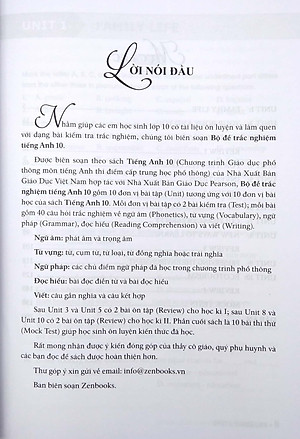 LỜI NÓI ĐẦU
Nhằm giúp các em học sinh lớp 10 có tài liệu ôn luyện và làm quen
với dạng bài kiểm tra trắc nghiệm, chúng tôi biên soạn Bộ đề trắc nghiệm
tiếng Anh 10.
Được biên soạn theo sách Tiếng Anh 10 (Chương trình Giáo dục phổ
thông môn tiếng Anh thí điểm cấp trung học phổ thông) của Nhà Xuất Bản
Giáo Dục Việt Nam hợp tác với Nhà Xuất Bản Giáo Dục Pearson, Bộ đề trắc
nghiệm tiếng Anh 10 gồm 10 đơn vị bài tập (Unit) tương ứng với 10 đơn vị bài
học của sách Tiếng Anh 10. Mỗi đơn vị bài tập có 2 bài kiểm tra (Test); mỗi bài
gồm 40 câu hỏi trắc nghiệm về ngữ âm (Phonetics), từ vựng (Vocabulary), ngữ
pháp (Grammar), đọc hiểu (Reading Comprehension) và viết (Writing).
Ngữ âm: phát âm và trọng âm
Từ vựng: từ, cụm từ, từ loại, từ đồng nghĩa hoặc trái nghĩa
Ngữ pháp: các chủ điểm ngữ pháp đã học trong chương trình phổ thông
Đọc hiểu: bài đọc điền từ và bài đọc hiểu
Viết: câu gần nghĩa và câu kết hợp
Sau Unit 3 và Unit 5 có 2 bài ôn tập (Review) cho học kì I; sau Unit 8 và
Unit 10 có 2 bài ôn tập (Review) cho học kì II. Phần cuối sách là 10 bài thi thử
(Mock Test) giúp học sinh ôn luyện kiến thức đã học.
Rất mong nhận được ý kiến đóng góp của thầy cô giáo, quý phụ huynh và
các bạn đọc để sách được hoàn thiện hơn.
Thư góp ý xin gửi về email: info@zenbooks.vn
Ban biên soạn Zenbooks.